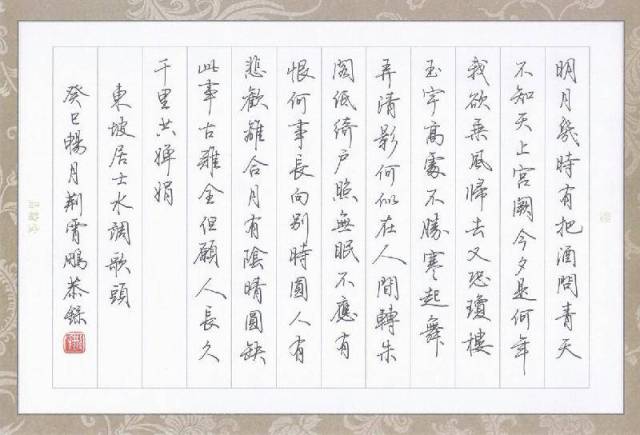 明月幾時有把酒問青天
不知天上宮闕今夕是何年
我欲乘風歸去又恐瓊樓
玉宇高處不勝寒起舞
弄清影何似在人間轉朱
閣低綺戶照無眠不應有
恨何事長向別時圓人有
悲歡離合月有陰晴圓缺
此事古難全但願人長久
千里共嬋娟
東坡居士水調歌頭
癸巳暢月荊霄鵬恭錄